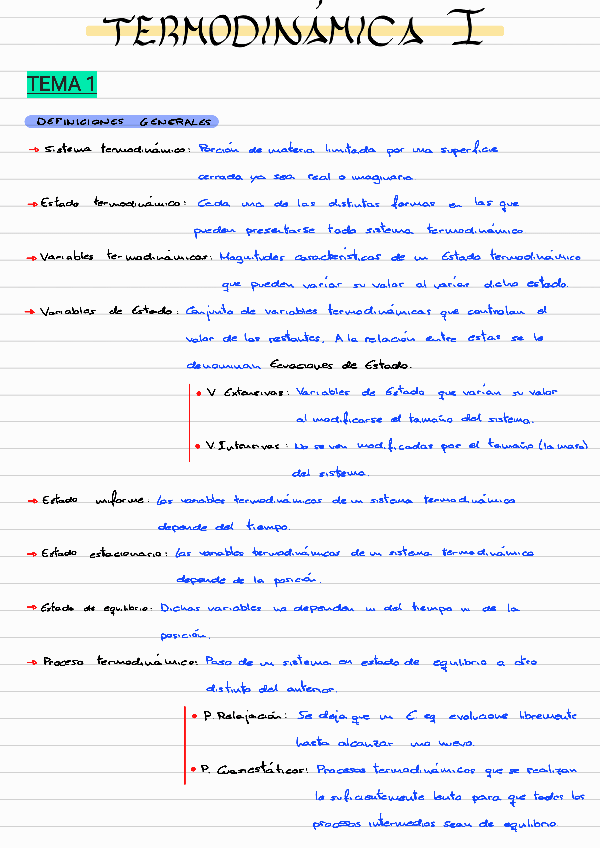 TERMODINÁMICA I
TEMA 1
DEFINICIONES GENERALES
→ Sistema termodinámico: Porción de materia limitada por una superficie
cerrada ya sea real o imaginaria.
→ Estado termodinámico: Cada una de las distintas formas en las que
pueden presentarse todo sistema termodinámico
→ Variables termodinámicas: Magnitudes características de un Estado termodinámico
que pueden variar su valor al variar dicho estado.
→ Variables de Estado: Conjunto de variables termodinámicas que controlan el
valor de las restantes. A la relación entre estas se le
denominan Ecuaciones de Estado.
• V Extensivas: Variables de Estado que varían su valor
al modificarse el tamaño del sistema.
• V. Intensivas: No se ven modificadas por el tamaño (la masa)
del sistema.
→ Estado uniforme: Las variables termodinámicas de un sistema termodinámico
depende del tiempo.
→ Estado estacionario: Las variables termodinámicas de un sistema termodinámico
depende de la posición.
→ Estado de equilibrio: Dichas variables no dependen ni del tiempo ni de la
posición.
→ Proceso termodinámico: Paso de un sistema en estado de equilibrio a otro
distinto del anterior.
• P. Relajación: Se deja que un E eq evolucione libremente
hasta alcanzar uno nuevo.
• P. Cuasiestáticos: Procesos termodinámicos que se realizan
lo suficientemente lento para que todos los
procesos intermedios sean de equilibrio